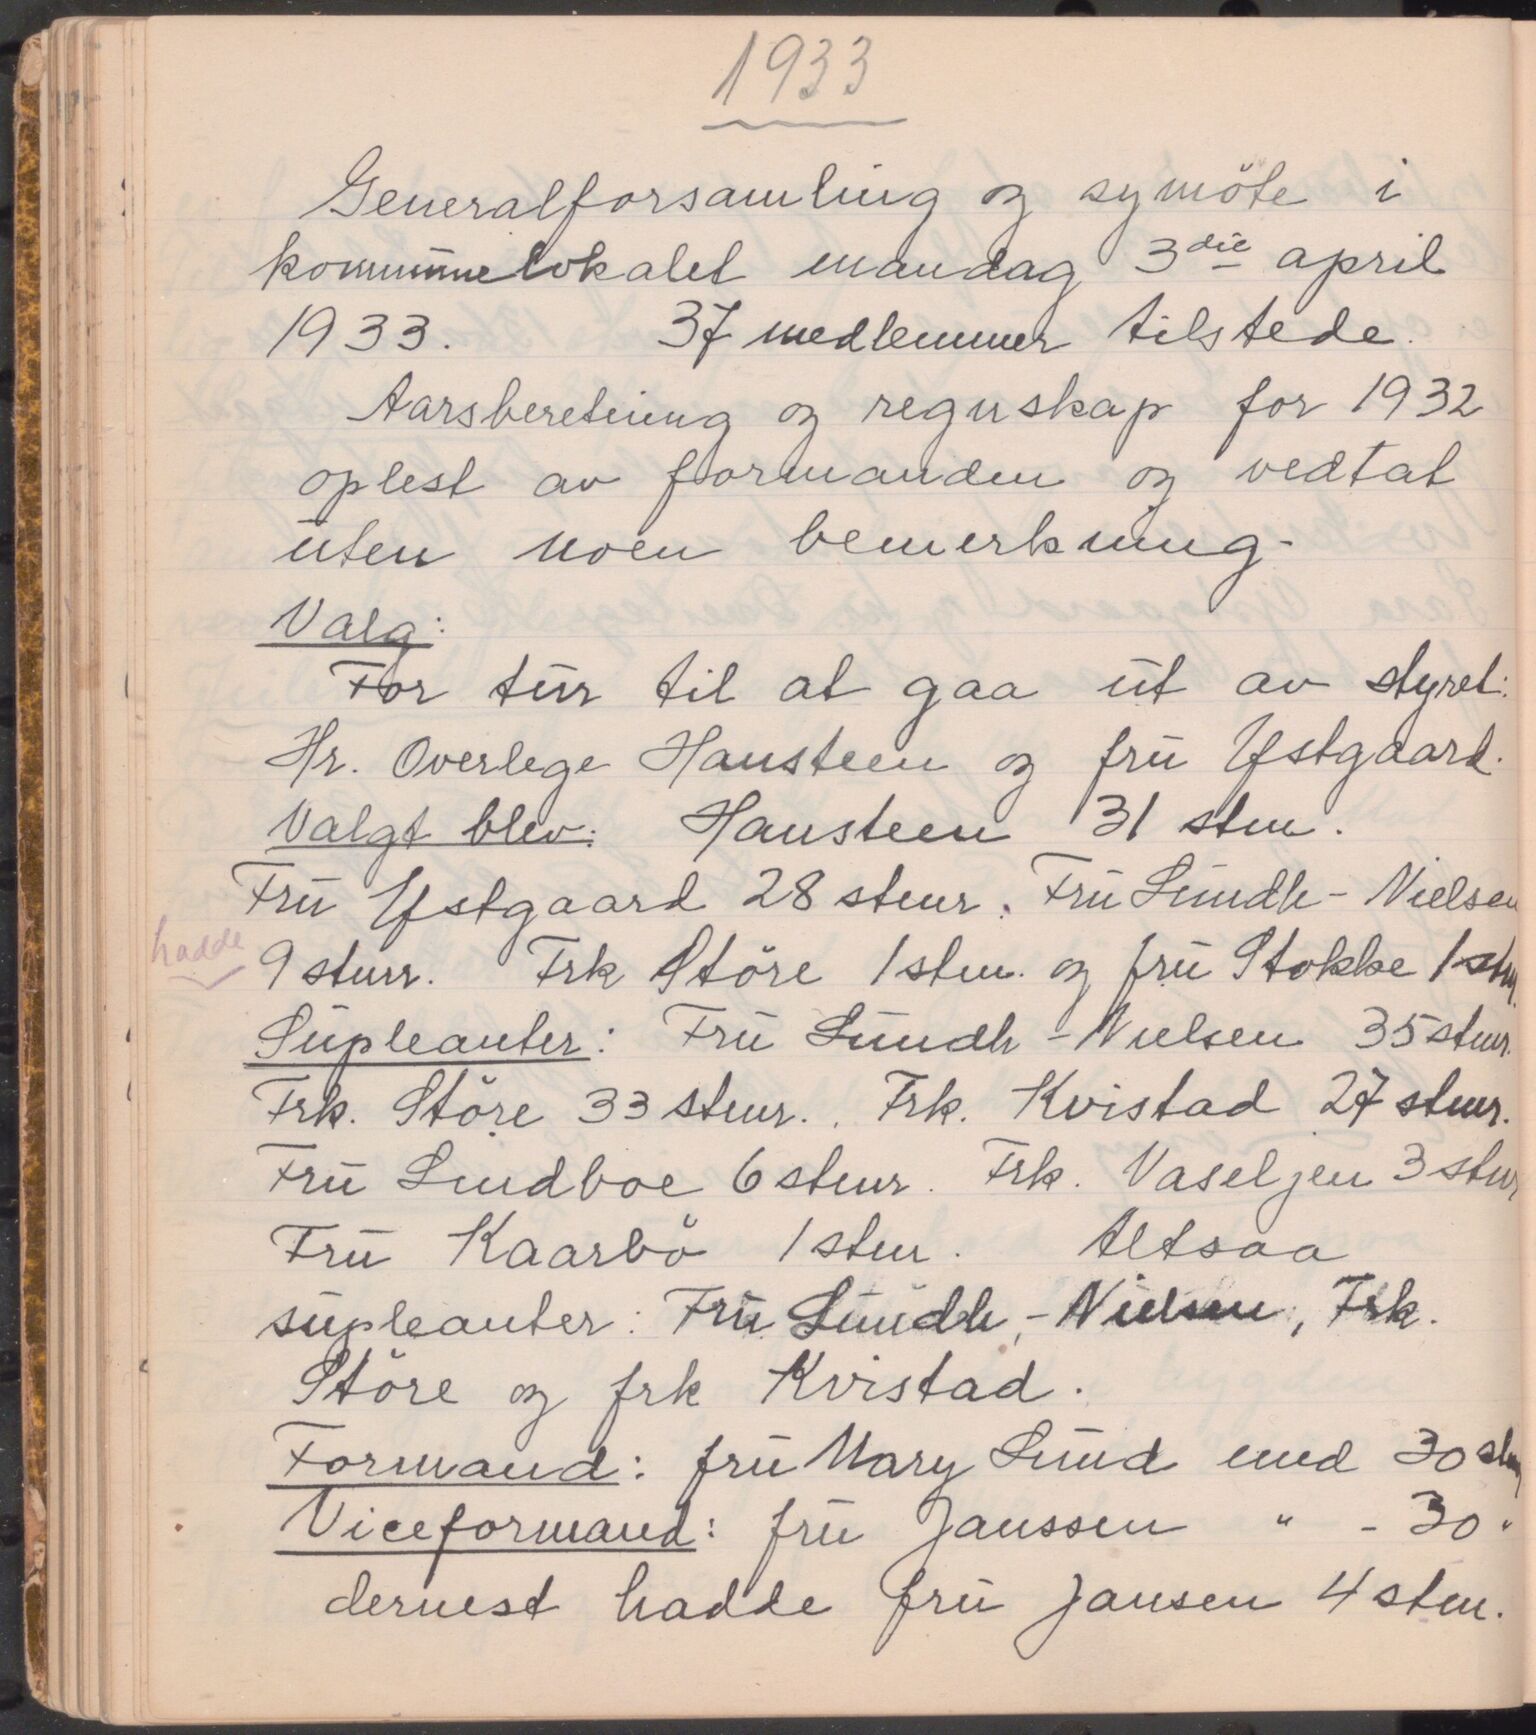 1933
Generalforsamling og symöte i
kommunelokalet mandag 3die april
1933. 37 medlemmer tilstede.
Aarsberetning og regnskap for 1932
oplest av formanden og vedtat
uten noen bemerkning.
Valg:
For tur til at gaa ut av styret:
Hr. Overlege Hansteen og fru Ystgaard.
Valgt blev: Hansteen 31 stm.
Fru Ystgaard 28 stmr. Fru Lundh-Nielsen
hadde 9 stmr. Frk Störe 1 stm. og fru Stokke 1 stm.
Supleanter: Fru Lundh-Nielsen 35 stmr.
Frk. Störe 33 stmr. Frk. Kvistad 27 stmr.
Fru Lindboe 6 stmr. Frk. Vaseljen 3 stmr
Fru Kaarbö 1 stm. Altsaa
supleanter: Fru Lundh-Nielsen, Frk.
Störe og frk Kvistad.
Formand: fru Mary Lund med 30 stm
Viceformand: fru Janssen " - 30 "
dernest hadde fru Jansen 4 stm.